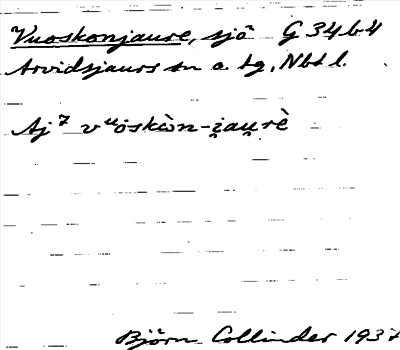 Vuoskonjaure, sjö G 34 b 4
Arvidsjaurs sn o. tg, Nbtl.
Aj⁷ vᵘöskȯ̀n-i̯au̯rè
Björn Collinder 1937